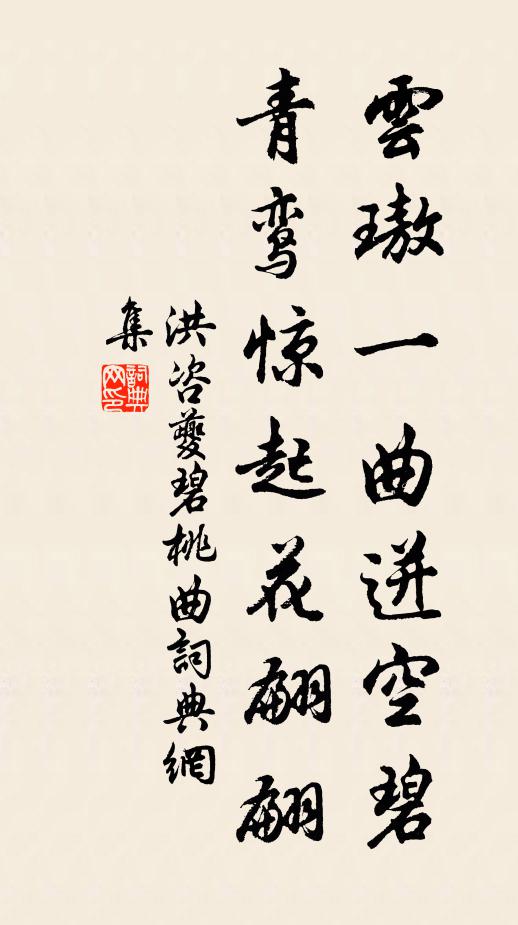 雲璈一曲迸空碧
青鸾惊起花翩翩
洪咨夔碧桃曲詞典網
集
詞典
网印